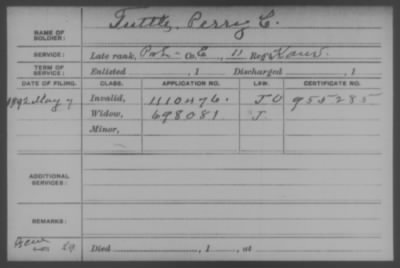 NAME OF SOLDIER: Tuttle, Perry C.
SERVICE: Late rank, Pvt Co. E, 11 Reg't Kans.
TERM OF SERVICE: Enlisted , 1 Discharged , 1
DATE OF FILING. CLASS. APPLICATION NO. LAW. CERTIFICATE NO.
1892 May 7 Invalid, 1110476. 955285
Widow, 698081
Minor,
ADDITIONAL SERVICES:
REMARKS:
Died , 1 , at